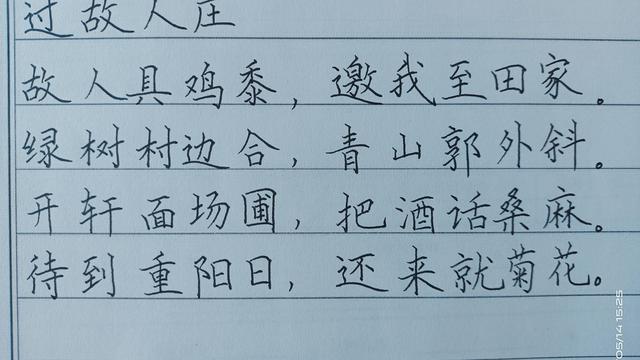 过故人庄
故人具鸡黍，邀我至田家。
绿树村边合，青山郭外斜。
开轩面场圃，把酒话桑麻。
待到重阳日，还来就菊花。
05/14 15:25